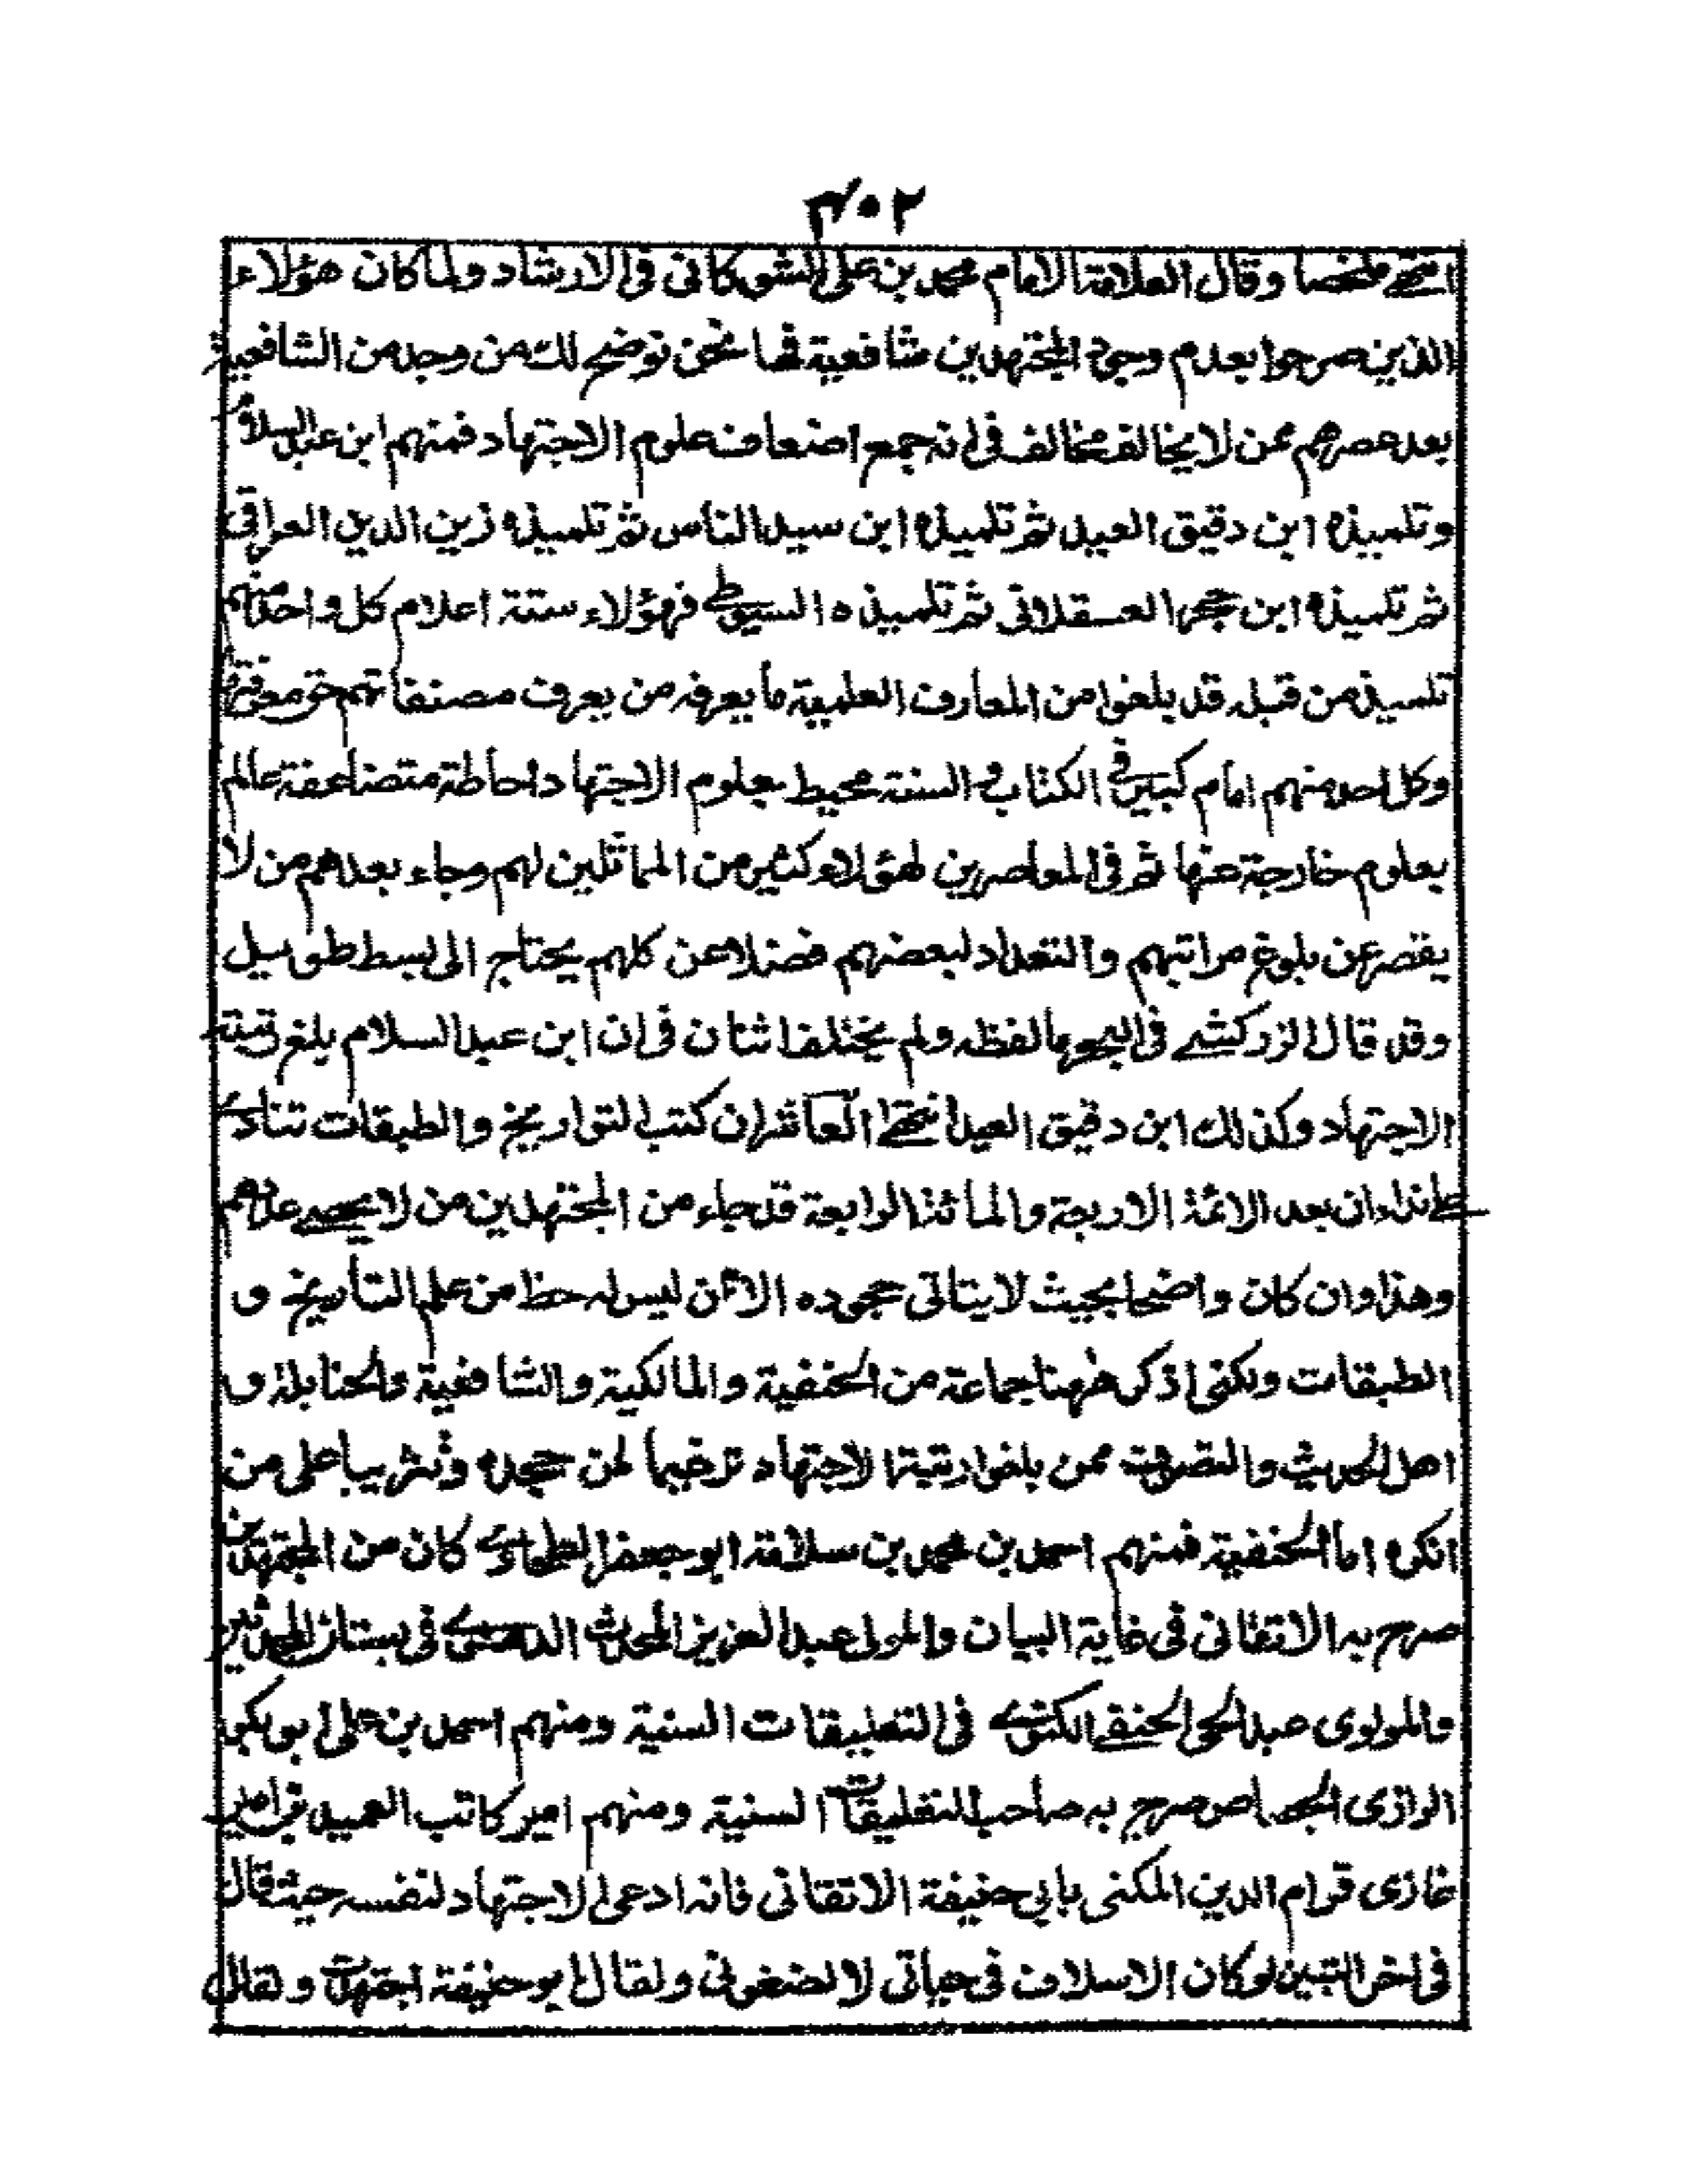 ۴۰۲
انتهى ملخصا وقال العلامة الامام محمد بن على الشوكانى فى الارشاد ولما كان هؤلاء
الذين صرحوا بعدم وجود المجتهدين شافعية فها نحن نوضح لك من وجد من الشافعية
بعد عصرهم ممن لا يخالف مخالف فى انه جمع اضعاف علوم الاجتهاد فمنهم ابن عبد السلام
وتلميذه ابن دقيق العيد ثم تلميذه ابن سيد الناس ثم تلميذه زين الدين العراقى
ثم تلميذه ابن حجر العسقلانى ثم تلميذه السيوطى فهؤلاء ستة اعلام كل واحد منهم
تلميذ من قبله قد بلغوا من المعارف العلمية ما يعرفه من يعرف مصنفاتهم حق معرفتها
وكل احد منهم امام كبير فى الكتاب والسنة محيط بعلوم الاجتهاد احاطة متضاعفة عالم
بعلوم خارجة عنها ثم فى المعاصرين لهؤلاء كثير من المماثلين لهم وجاء بعدهم من لا
يقصر عن بلوغ مراتبهم والتعداد لبعضهم فضلا عن كلهم يحتاج الى بسط طويل
وقد قال الزركشى فى البحر ما لفظه ولم يختلف اثنان فى ان ابن عبد السلام بلغ رتبة
الاجتهاد وكذلك ابن دقيق العيد انتهى العاشر ان كتب التواريخ والطبقات تنادى
على نداء ان بعد الائمة الاربعة والمائة الرابعة قد جاء من المجتهدين من لا يحصى عددهم
وهذا وان كان واضحا بحيث لا يتاتى جحوده الا ممن ليس له حظ من علم التأريخ و
الطبقات ولكنى اذكر ههنا جماعة من الحنفية والمالكية والشافعية والحنابلة و
اهل الحديث والتصوف ممن بلغوا رتبة الاجتهاد ترغيما لمن جحده وتثريبا على من
انكره اما الحنفية فمنهم احمد بن محمد بن سلامة ابو جعفر الطحاوى كان من المجتهدين
صرح به الاتقانى فى غاية البيان والمولى عبد العزيز المحدث الدهلوى فى بستان المحدثين
والمولوى عبد الحى الحنفى اللكنوى فى التعليقات السنية ومنهم احمد بن على ابو بكر
الرازى الجصاص صرح به صاحب التعليقات السنية ومنهم امير كاتب العميد بن امير
غازى قوام الدين المكنى بابي حنيفة الاتقانى فانه ادعى الاجتهاد لنفسه حيث قال
فى اخر التبيين لو كان الاسلاف فى حياتى لانصفونى ولقال ابو حنيفة اجتهدت ولقال